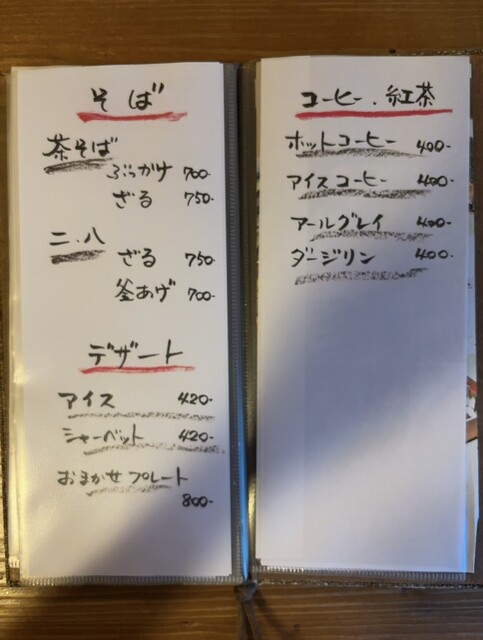 そば
茶そば
ぶっかけ 700-
ざる 750-
二・八
ざる 750-
釜あげ 700-
デザート
アイス 420-
シャーベット 420-
おまかせプレート
800-
コーヒー・紅茶
ホットコーヒー 400-
アイスコーヒー 400-
アールグレイ 400-
ダージリン 400-